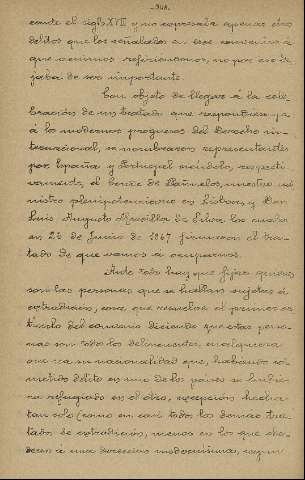 rante el siglo XVIII y no expresaba apenas otros
delitos que los señalados en ese convenio á
que acabamos referirnos, no por eso de-
jaba de ser importante.
Con objeto de llegar á la cele-
bración de un tratado que respondiera ya
á los modernos progresos del Derecho in-
ternacional, se nombraron representantes
por España y Portugal siéndolo, respecti-
vamente, el Conde de Bañuelos, nuestro mi-
nistro plenipotenciario en Lisboa, y Don
Luis Augusto de Silva los cuales
en 25 de Junio de 1867 firmaron el tra-
tado de que vamos á ocuparnos.
Ante todo hay que fijar quienes
son las personas que se hallan sujetas á
extradición, cosa que resuelve el primer ar-
tículo del convenio diciendo que estas perso-
nas son todos los delincuentes, cualquiera
que sea su nacionalidad que, habiendo co-
metido delito en uno de los países se hubie-
ra refugiado en el otro, excepción hecha
tan solo (como en casi todos los demás tra-
tados de extradición, menos en los que obe-
decen á una dirección modernísima, según